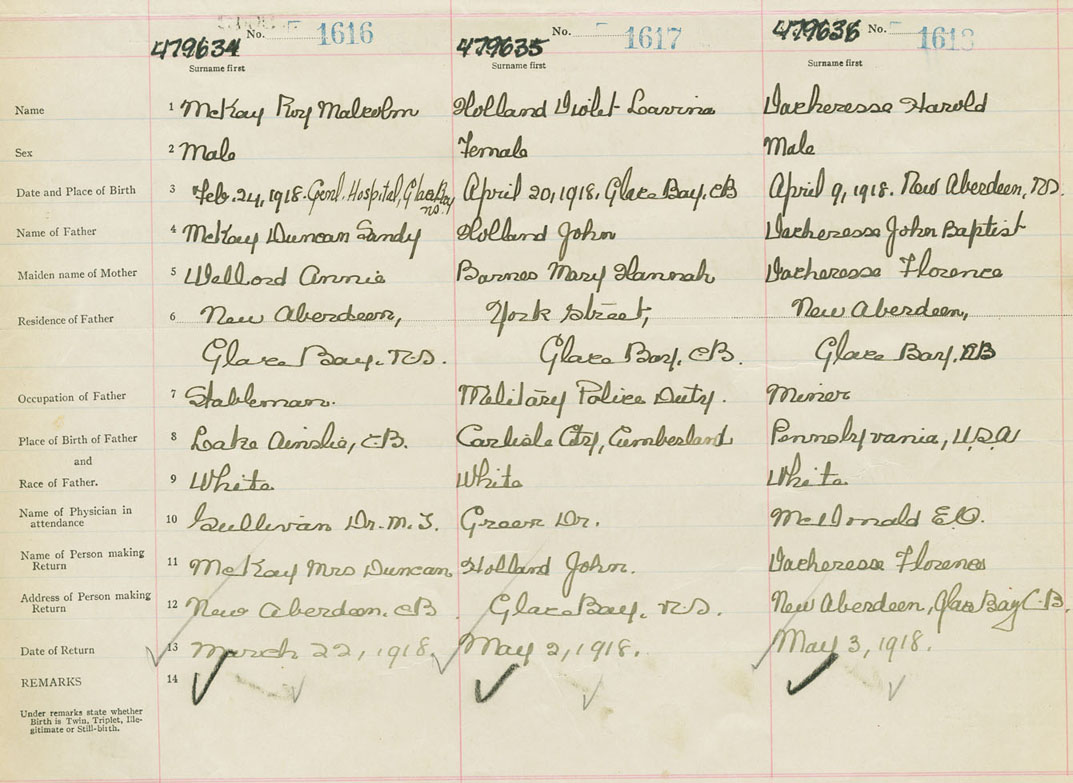 479634 No. 1616 479635 No. 1617 479636 No. 1618
Surname first Surname first Surname first
Name 1 McKay Roy Malcolm Holland Violet Lavvina Vacheresse Harold
Sex 2 Male Female Male
Date and Place of Birth 3 Feb. 24, 1918. Genl. Hospital, Glace Bay N.S. April 20, 1918, Glace Bay, CB April 9, 1918. New Aberdeen, N.S.
Name of Father 4 McKay Duncan Sandy Holland John Vacheresse John Baptist
Maiden name of Mother 5 Annie Barnes Mary Hannah Vacheresse Florence
Residence of Father 6 New Aberdeen, York Street, New Aberdeen,
Glace Bay. N.S. Glace Bay, CB. Glace Bay, CB
Occupation of Father 7 Stableman. Military Police Duty. Miner
Place of Birth of Father 8 Lake Ainslie, CB. Carlisle City, Cumberland Pennslyvania, U.S.A
and
Race of Father. 9 White White White.
Name of Physician in
attendance 10 Sullivan Dr. M. T. Green Dr. McDonald E.O.
Name of Person making
Return 11 McKay Mrs Duncan Holland John. Vacheresse Florence
Address of Person making
Return 12 New Aberdeen. CB Glace Bay, N.S. New Aberdeen, Glace Bay C.B.
Date of Return 13 March 22, 1918. May 2, 1918. May 3, 1918.
REMARKS 14
Under remarks state whether
Birth is Twin, Triplet, Ille-
gitimate or Still-birth.